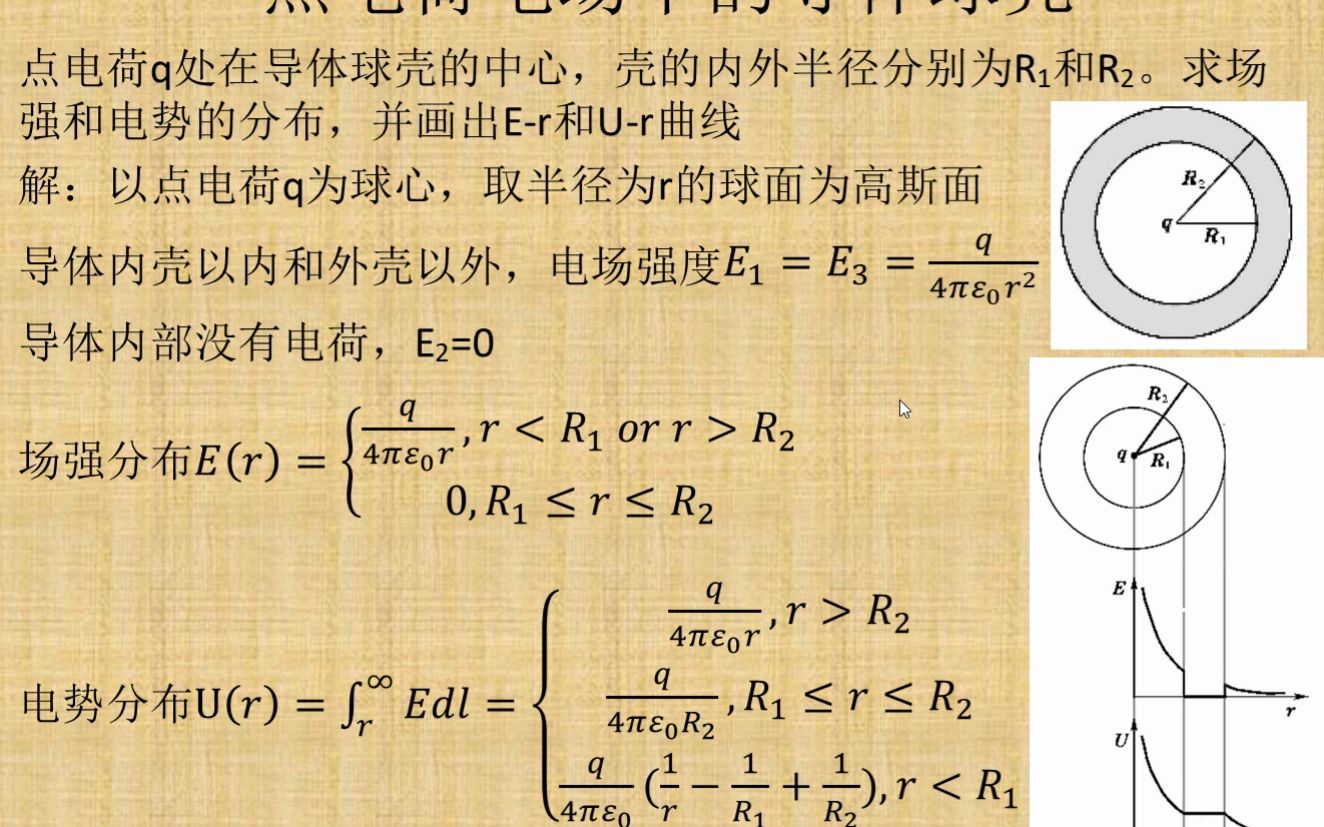 点电荷q处在导体球壳的中心，壳的内外半径分别为R₁和R₂。求场
强和电势的分布，并画出E-r和U-r曲线
解：以点电荷q为球心，取半径为r的球面为高斯面
导体内壳以内和外壳以外，电场强度E₁ = E₃ = q/(4πε₀r²)
导体内部没有电荷，E₂=0
场强分布E(r) = { q/(4πε₀r), r < R₁ or r > R₂
0, R₁ ≤ r ≤ R₂
电势分布U(r) = ∫ᵣ^∞ Edl = { q/(4πε₀r), r > R₂
q/(4πε₀R₂), R₁ ≤ r ≤ R₂
q/(4πε₀) (1/r − 1/R₁ + 1/R₂), r < R₁
R₂
q
R₁
R₂
q
R₁
E
r
U